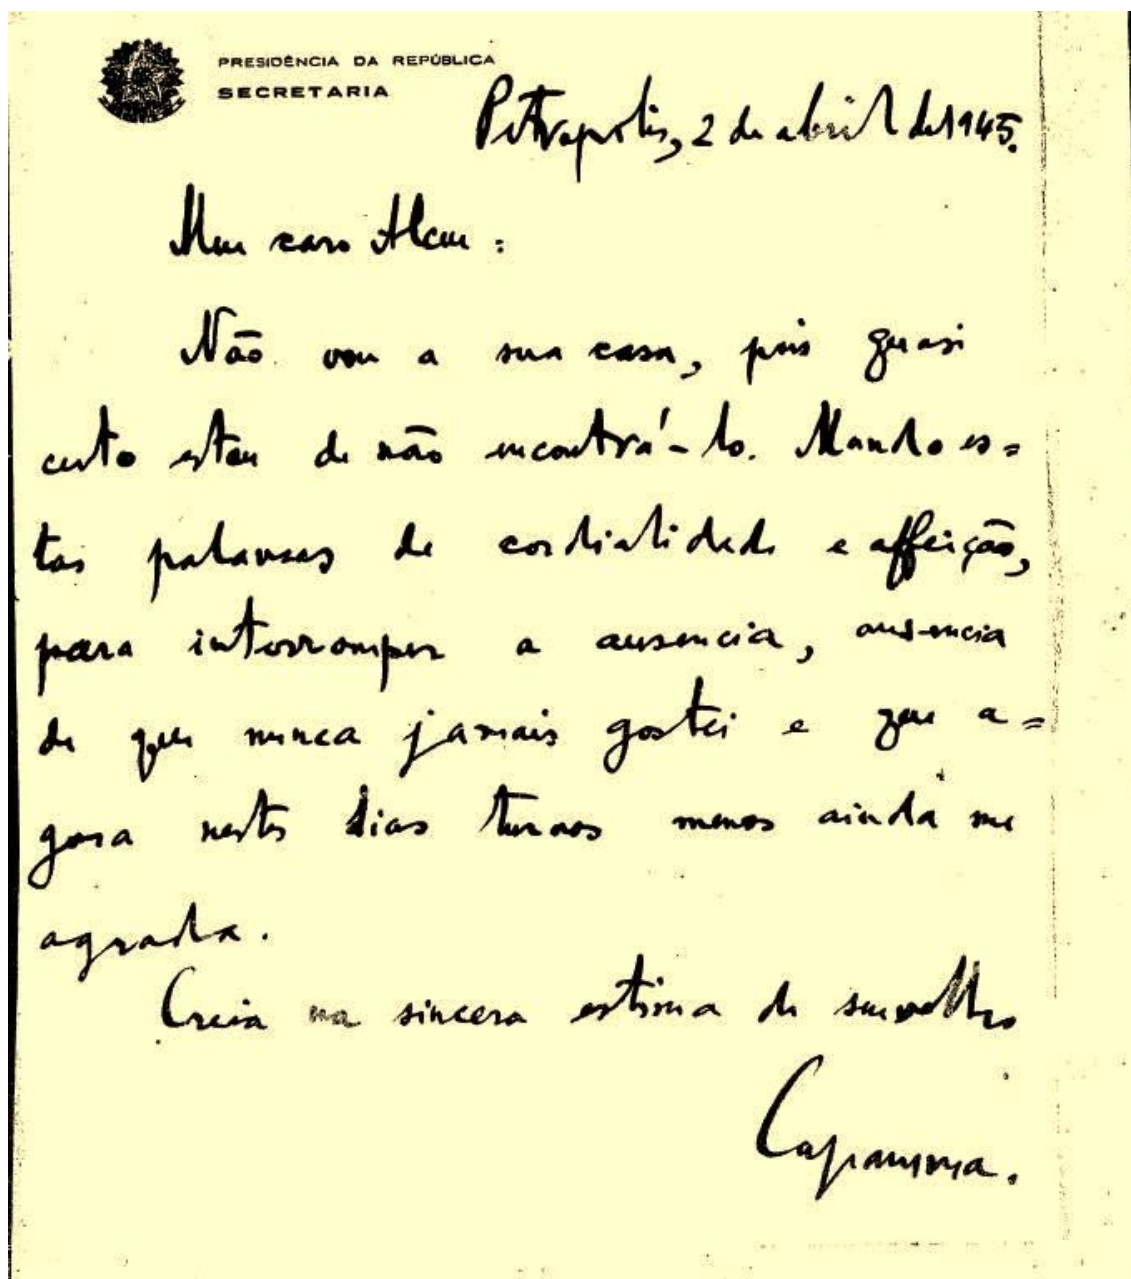 PRESIDÊNCIA DA REPÚBLICA
SECRETARIA
Petropolis, 2 de abril de 1945.
Meu caro Alceu:
Não vou a sua casa, pois quasi
certo estou de não encontrá-lo. Mando es=
tas palavras de cordialidade e affeição,
para interromper a ausencia, ausencia
de que nunca jamais gostei e que a=
gora nestes dias turvos menos ainda me
agrada.
Creia na sincera estima de seu velho
Capanema.